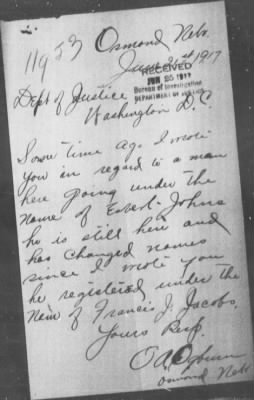 11957
Osmond, Nebr.
June 21st 1917
RECEIVED
JUN 25 1917
Bureau of Investigation
DEPARTMENT OF JUSTICE
Dept of Justice
Washington D.C.
Some time ago I wrote
you in regard to a man
here going under the
name of Evert Johns
he is still here and
has changed names
since I wrote you
he registered under the
Name of Francis J. Jacobs.
Yours Resp.
Osmond Nebr